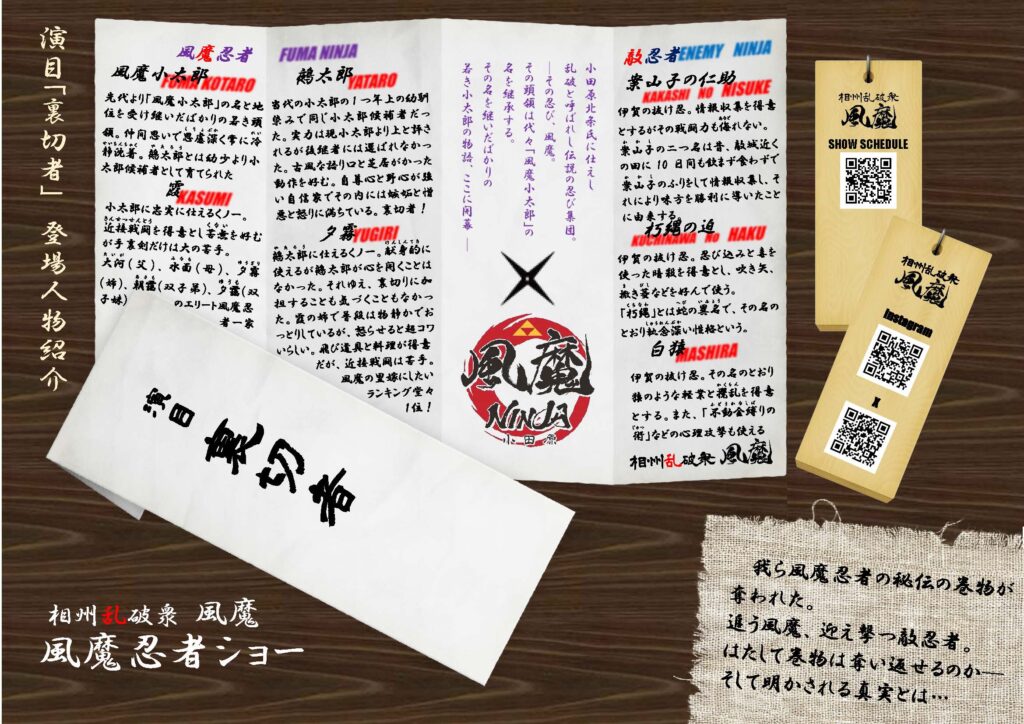 演目「裏切者」 登場人物紹介
風魔忍者
風魔小太郎
FUMA KOTARO
先代より「風魔小太郎」の名と地
位を受け継いだばかりの若き頭
領。仲間思いで思慮深く常に冷
静沈着。鵺太郎とは幼少より小
太郎候補者として育てられた
霞
KASUMI
小太郎に忠実に仕えるくノ一。
近接戦闘を得意とし苦無を好む
が手裏剣だけは大の苦手。
大河(父)、水面(母)、夕霧
(姉)、朝霞(双子弟)、夕霞(双
子妹)
のエリート風魔忍
者一家
FUMA NINJA
鵺太郎
YATARO
当代の小太郎の1つ年上の幼馴
染みで同じ小太郎候補者だっ
た。実力は現小太郎より上と評さ
れるが後継者には選ばれなかっ
た。古風な語り口と芝居がかった
動作を好む。自尊心と野心が強
い自信家でその内には嫉妬と憎
悪と怒りに満ちている。裏切者!
夕霧
YUGIRI
鵺太郎に仕えるくノ一。献身的に
使えるが鵺太郎が心を開くことは
なかった。それゆえ、裏切りに加
担することも気づくこともなかっ
た。霞の姉で普段は物静かでお
っとりしているが、怒らせると超コワ
いらしい。飛び道具と料理が得意
だが、近接戦闘は苦手。
風魔の里嫁にしたい
ランキング堂々
1位!
小田原北条氏に仕えし
乱破と呼ばれし伝説の忍び集団。
―その忍び、風魔。
その頭領は代々「風魔小太郎」の
名を継承する。
その名を継いだばかりの
若き小太郎の物語、ここに開幕―
風魔
NINJA
小田原
敵忍者ENEMY NINJA
葉山子の仁助
KAKASHI NO NISUKE
伊賀の抜け忍。情報収集を得意
とするがその戦闘力も侮れない。
葉山子の二つ名は昔、敵城近く
の田に10日間も飲まず食わずで
葉山子のふりをして情報収集し、そ
れにより味方を勝利に導いたこと
に由来する。
朽縄の迫
KUCHINAWA NO HAKU
伊賀の抜け忍。忍び込みと毒を
使った暗殺を得意とし、吹き矢、
撒き菱などを好んで使う。
「朽縄」とは蛇の異名で、その名の
とおり執念深い性格という。
白猿
MASHIRA
伊賀の抜け忍。その名のとおり
猿のような軽業と攪乱を得意
とする。また、「不動金縛りの
術」などの心理攻撃も使える
相州乱破衆 風魔
相州乱破衆
風魔
SHOW SCHEDULE
相州乱破衆
風魔
Instagram
X
演目 裏切者
相州乱破衆 風魔
風魔忍者ショー
我ら風魔忍者の秘伝の巻物が
奪われた。
追う風魔、迎え撃つ敵忍者。
はたして巻物は奪い返せるのか―
そして明かされる真実とは…